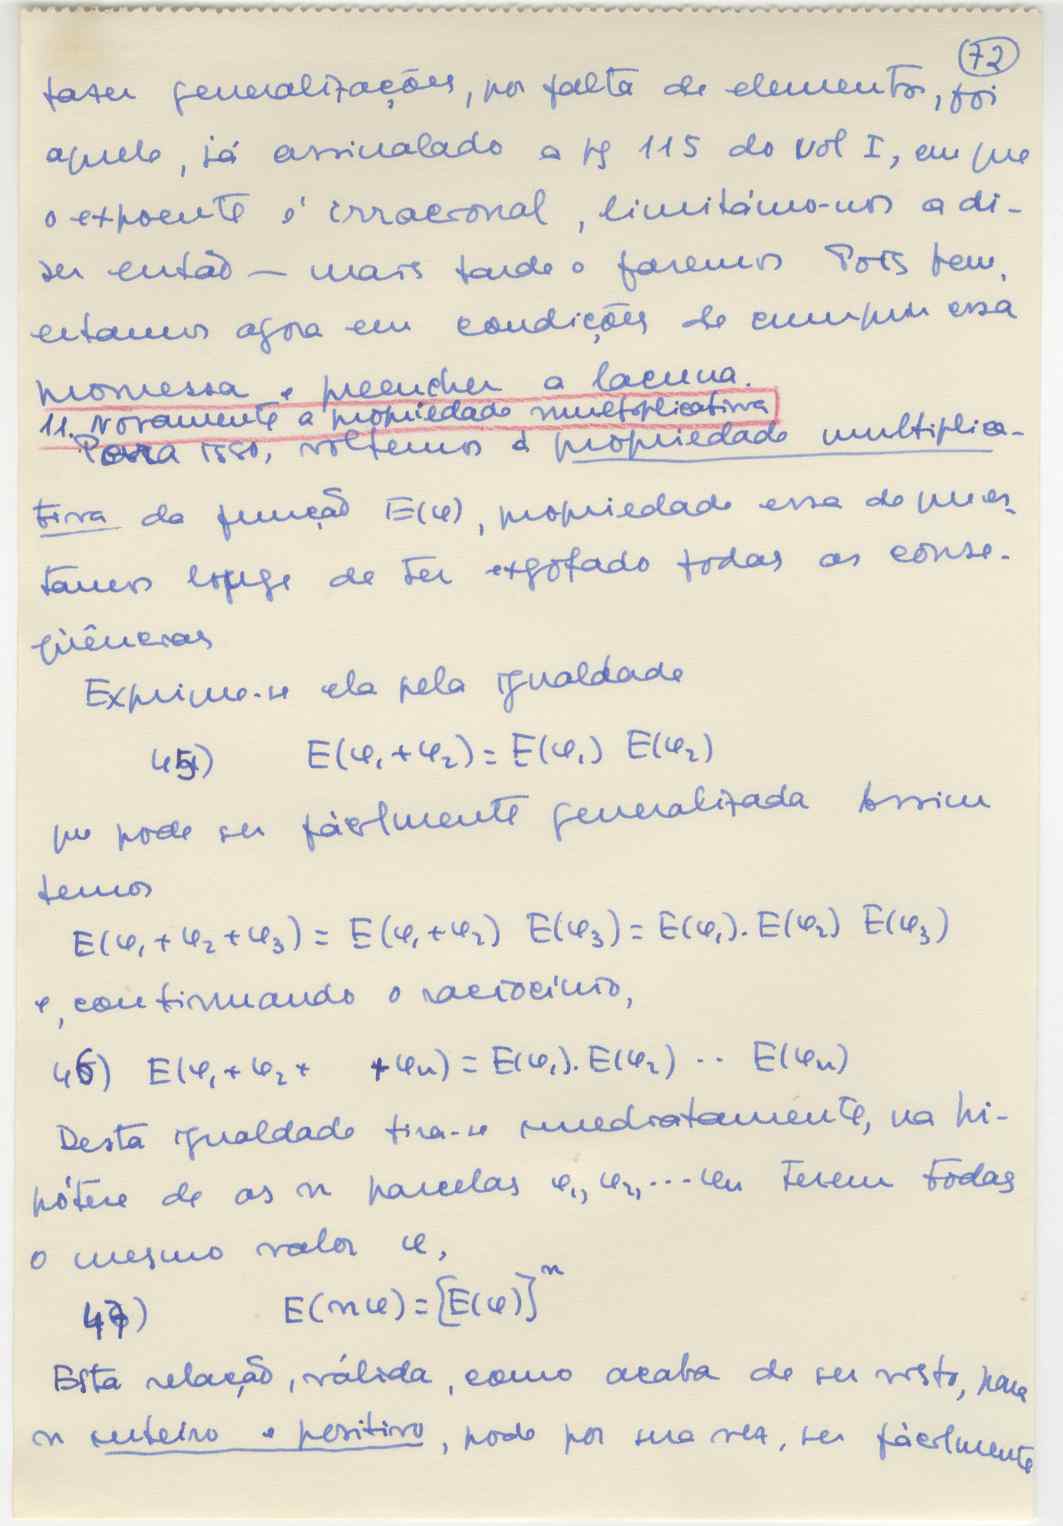 72
fazer generalizações, por falta de elementos, foi
aquele, já assinalado a pg 115 do vol I, em que
o expoente é irracional, limitámo-nos a di-
zer então — mais tarde o faremos Pois bem,
estamos agora em condições de cumprir essa
promessa e preencher a lacuna.
11. Novamente a propriedade multiplicativa
Para isso, voltemos à propriedade multiplica-
tiva da função E(φ), propriedade essa de que es-
tamos longe de ter esgotado todas as conse-
qüências
Exprime-se ela pela igualdade
45) E(φ₁+φ₂) = E(φ₁) E(φ₂)
que pode ser fàcilmente generalizada Assim
temos
E(φ₁+φ₂+φ₃) = E(φ₁+φ₂) E(φ₃) = E(φ₁). E(φ₂) E(φ₃)
e, continuando o raciocínio,
46) E(φ₁+φ₂+ +φn) = E(φ₁). E(φ₂) .. E(φn)
Desta igualdade tira-se imediatamente, na hi-
pótese de as n parcelas φ₁, φ₂, ... φn serem todas
o mesmo valor φ,
47) E(nφ) = [E(φ)]ⁿ
Esta relação, válida, como acaba de ser visto, para
n inteiro e positivo, pode por sua vez, ser fàcilmente